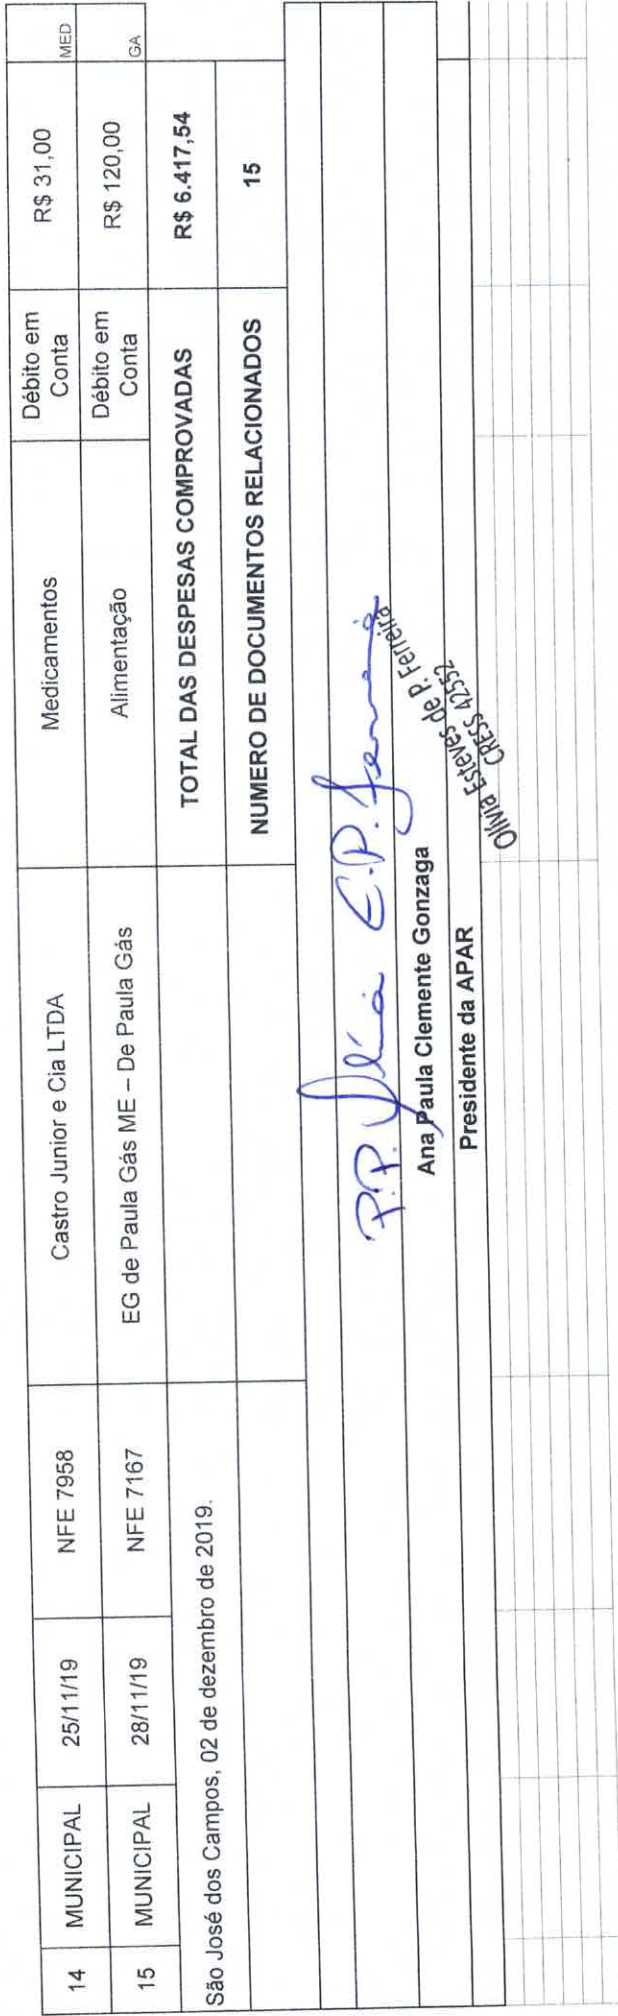 14 MUNICIPAL 25/11/19 NFE 7958 Castro Junior e Cia LTDA Medicamentos Débito em Conta R$ 31,00 MED
15 MUNICIPAL 28/11/19 NFE 7167 EG de Paula Gás ME – De Paula Gás Alimentação Débito em Conta R$ 120,00 GA
TOTAL DAS DESPESAS COMPROVADAS R$ 6.417,54
São José dos Campos, 02 de dezembro de 2019.
NUMERO DE DOCUMENTOS RELACIONADOS 15
P.P. Olívia E.P. Ferreira
Ana Paula Clemente Gonzaga
Presidente da APAR
Olívia Esteves de P. Ferreira
CRESS 42552